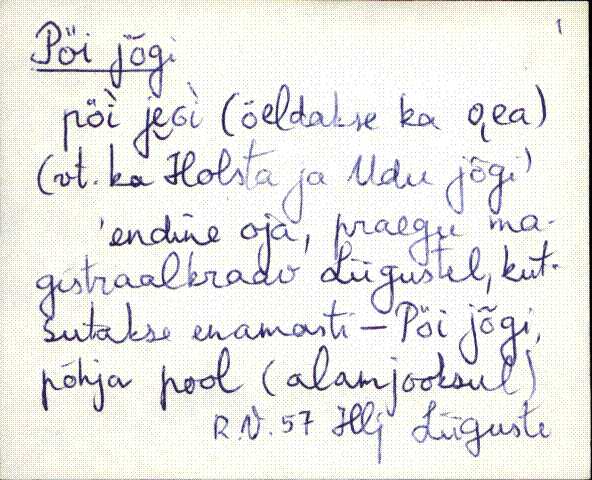 1
Pöi jõgi
pöì jeɢì (öeldakse ka o̬ea)
(vt. ka Holsta ja Udu jõgi)
'endine oja, praegu ma-
gistraalkraav Liigustel, kut-
sutakse enamasti – Pöi jõgi,
põhja pool (alamjooksul)
R.V. 57 Hlj Liiguste